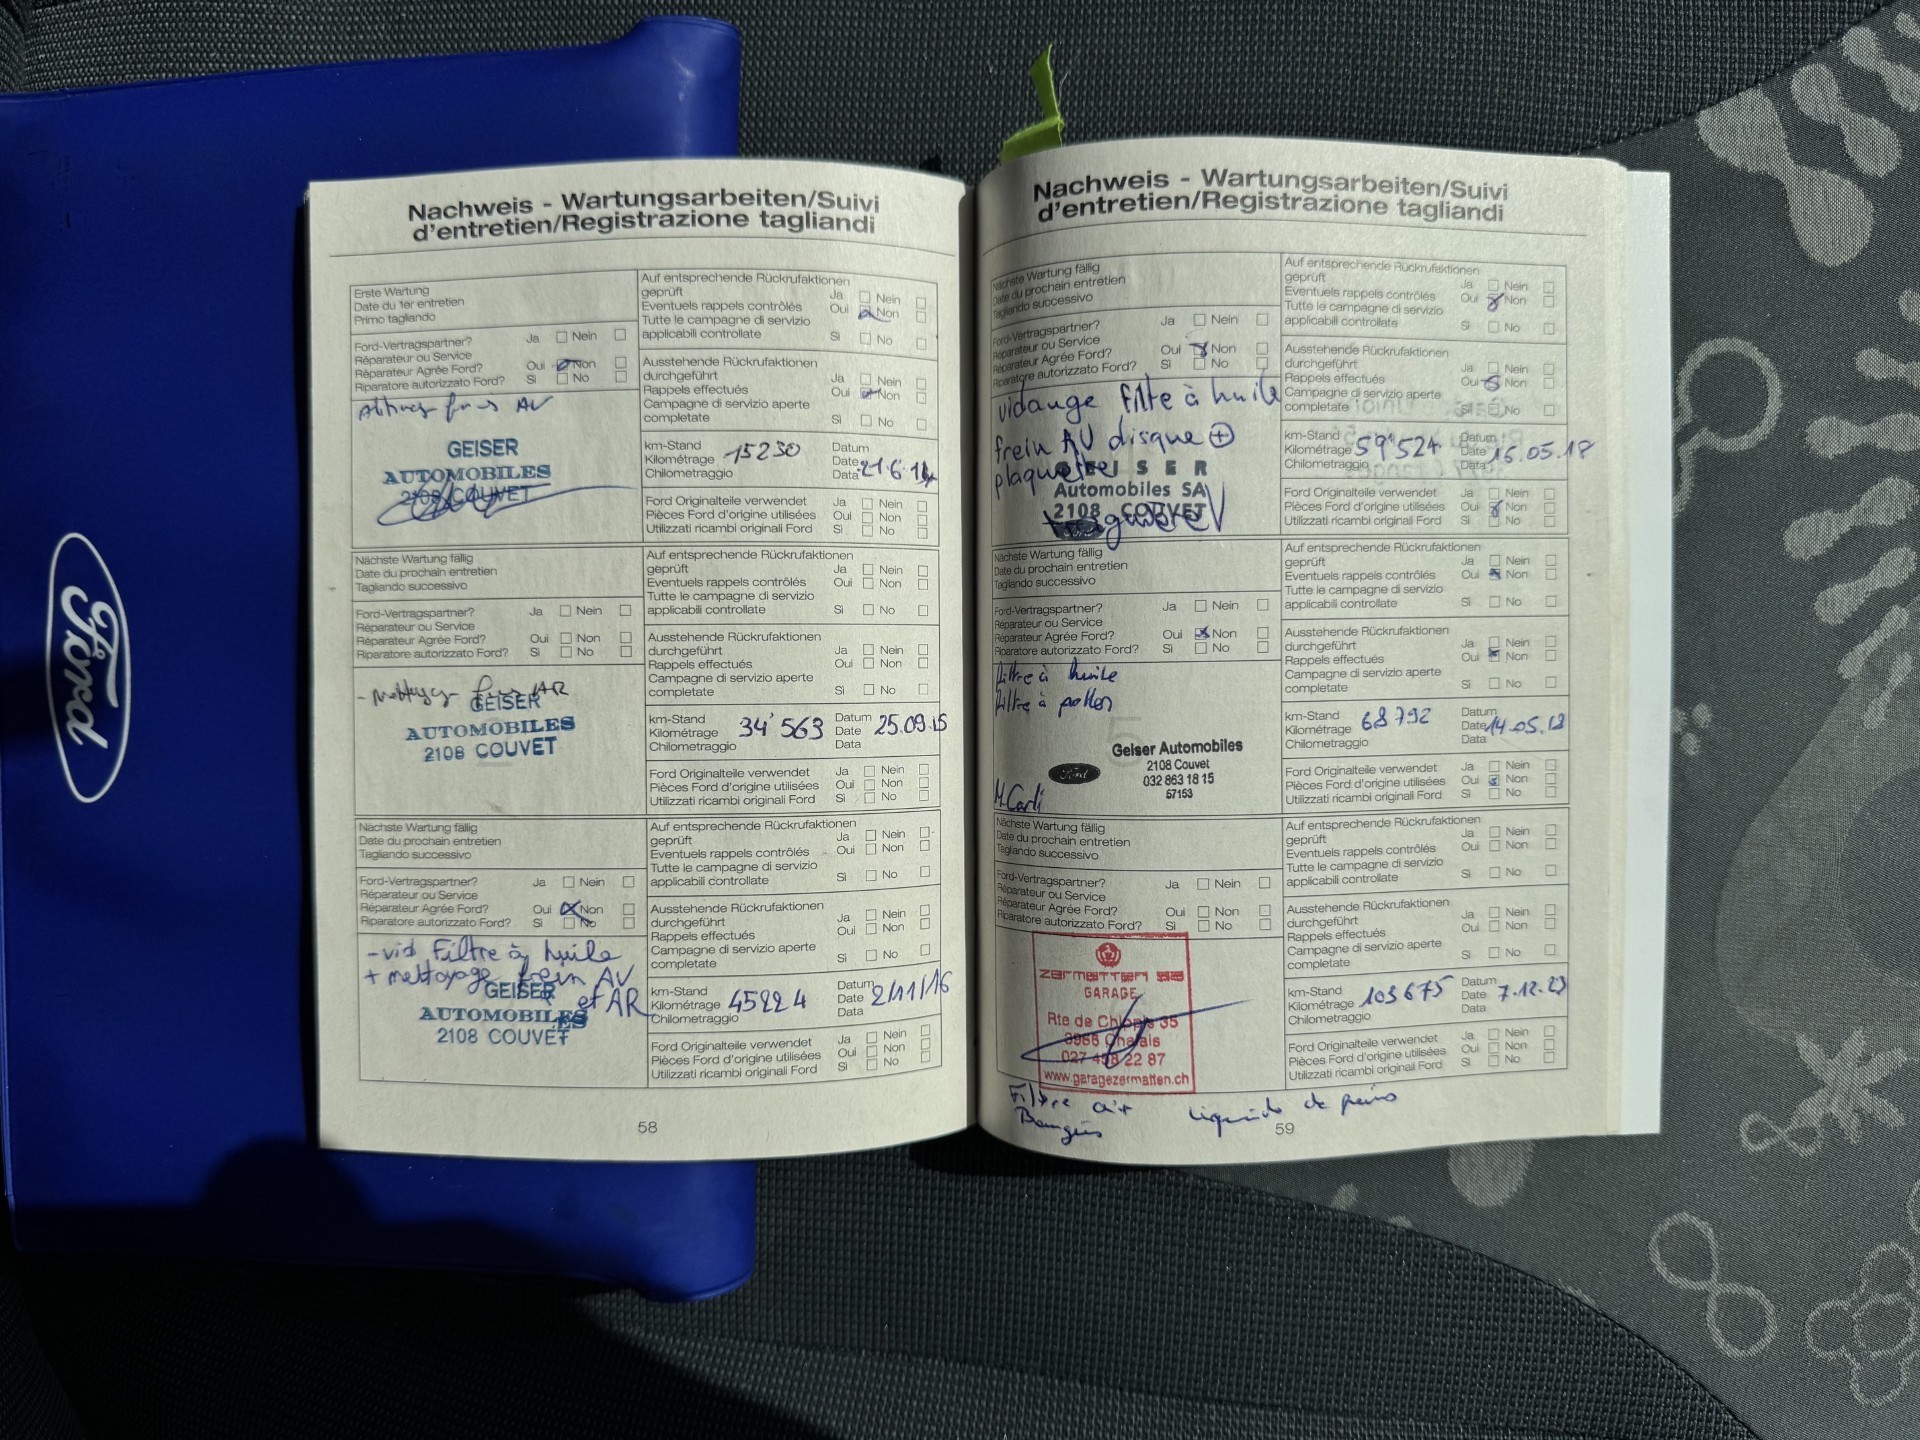 Ford
Nachweis - Wartungsarbeiten/Suivi
d'entretien/Registrazione tagliandi
Erste Wartung
Date du 1er entretien
Primo tagliando
Ford-Vertragspartner?
Réparateur ou Service
Réparateur Agréé Ford?
Riparatore autorizzato Ford?
Ja Nein
Oui Non
Si No
AV
GEISER
AUTOMOBILES
2108 COUVET
Auf entsprechende Rückrufaktionen
geprüft
Eventuels rappels contrôlés
Tutte le campagne di servizio
applicabili controllate
Ja Nein
Oui Non
Si No
Ausstehende Rückrufaktionen
durchgeführt
Rappels effectués
Campagne di servizio aperte
completate
Ja Nein
Oui Non
Si No
km-Stand
Kilométrage 15230
Chilometraggio
Datum
Date 21.6.14
Data
Ford Originalteile verwendet
Pièces Ford d'origine utilisées
Utilizzati ricambi originali Ford
Ja Nein
Oui Non
Si No
Nächste Wartung fällig
Date du prochain entretien
Tagliando successivo
Ford-Vertragspartner?
Réparateur ou Service
Réparateur Agréé Ford?
Riparatore autorizzato Ford?
Ja Nein
Oui Non
Si No
AR
GEISER
AUTOMOBILES
2108 COUVET
Auf entsprechende Rückrufaktionen
geprüft
Eventuels rappels contrôlés
Tutte le campagne di servizio
applicabili controllate
Ja Nein
Oui Non
Si No
Ausstehende Rückrufaktionen
durchgeführt
Rappels effectués
Campagne di servizio aperte
completate
Ja Nein
Oui Non
Si No
km-Stand
Kilométrage 34'563
Chilometraggio
Datum
Date 25.09.15
Data
Ford Originalteile verwendet
Pièces Ford d'origine utilisées
Utilizzati ricambi originali Ford
Ja Nein
Oui Non
Si No
Nächste Wartung fällig
Date du prochain entretien
Tagliando successivo
Ford-Vertragspartner?
Réparateur ou Service
Réparateur Agréé Ford?
Riparatore autorizzato Ford?
Ja Nein
Oui Non
Si No
-vid Filtre à huile
+ nettoyage frein AV
et AR
GEISER
AUTOMOBILES
2108 COUVET
Auf entsprechende Rückrufaktionen
geprüft
Eventuels rappels contrôlés
Tutte le campagne di servizio
applicabili controllate
Ja Nein
Oui Non
Si No
Ausstehende Rückrufaktionen
durchgeführt
Rappels effectués
Campagne di servizio aperte
completate
Ja Nein
Oui Non
Si No
km-Stand
Kilométrage 45224
Chilometraggio
Datum
Date 2/11/16
Data
Ford Originalteile verwendet
Pièces Ford d'origine utilisées
Utilizzati ricambi originali Ford
Ja Nein
Oui Non
Si No
58
Nachweis - Wartungsarbeiten/Suivi
d'entretien/Registrazione tagliandi
Nächste Wartung fällig
Date du prochain entretien
Tagliando successivo
Ford-Vertragspartner?
Réparateur ou Service
Réparateur Agréé Ford?
Riparatore autorizzato Ford?
Ja Nein
Oui Non
Si No
vidange filtre à huile
frein AV disque +
plaquette
GEISER
Automobiles SA
2108 COUVET
Auf entsprechende Rückrufaktionen
geprüft
Eventuels rappels contrôlés
Tutte le campagne di servizio
applicabili controllate
Ja Nein
Oui Non
Si No
Ausstehende Rückrufaktionen
durchgeführt
Rappels effectués
Campagne di servizio aperte
completate
Ja Nein
Oui Non
Si No
km-Stand
Kilométrage 59'524
Chilometraggio
Datum
Date 16.05.18
Data
Ford Originalteile verwendet
Pièces Ford d'origine utilisées
Utilizzati ricambi originali Ford
Ja Nein
Oui Non
Si No
Nächste Wartung fällig
Date du prochain entretien
Tagliando successivo
Ford-Vertragspartner?
Réparateur ou Service
Réparateur Agréé Ford?
Riparatore autorizzato Ford?
Ja Nein
Oui Non
Si No
filtre à huile
filtre à pollen
Geiser Automobiles
2108 Couvet
032 863 18 15
57153
Ford
Auf entsprechende Rückrufaktionen
geprüft
Eventuels rappels contrôlés
Tutte le campagne di servizio
applicabili controllate
Ja Nein
Oui Non
Si No
Ausstehende Rückrufaktionen
durchgeführt
Rappels effectués
Campagne di servizio aperte
completate
Ja Nein
Oui Non
Si No
km-Stand
Kilométrage 68792
Chilometraggio
Datum
Date
Data
Ford Originalteile verwendet
Pièces Ford d'origine utilisées
Utilizzati ricambi originali Ford
Ja Nein
Oui Non
Si No
Nächste Wartung fällig
Date du prochain entretien
Tagliando successivo
Ford-Vertragspartner?
Réparateur ou Service
Réparateur Agréé Ford?
Riparatore autorizzato Ford?
Ja Nein
Oui Non
Si No
zermatten sa
GARAGE
Rte de Chippis 35
3966 Chalais
027 458 22 87
www.garagezermatten.ch
Auf entsprechende Rückrufaktionen
geprüft
Eventuels rappels contrôlés
Tutte le campagne di servizio
applicabili controllate
Ja Nein
Oui Non
Si No
Ausstehende Rückrufaktionen
durchgeführt
Rappels effectués
Campagne di servizio aperte
completate
Ja Nein
Oui Non
Si No
km-Stand
Kilométrage 103675
Chilometraggio
Datum
Date 7.12.23
Data
Ford Originalteile verwendet
Pièces Ford d'origine utilisées
Utilizzati ricambi originali Ford
Ja Nein
Oui Non
Si No
Filtre air Liquide de freins
Bougies
59